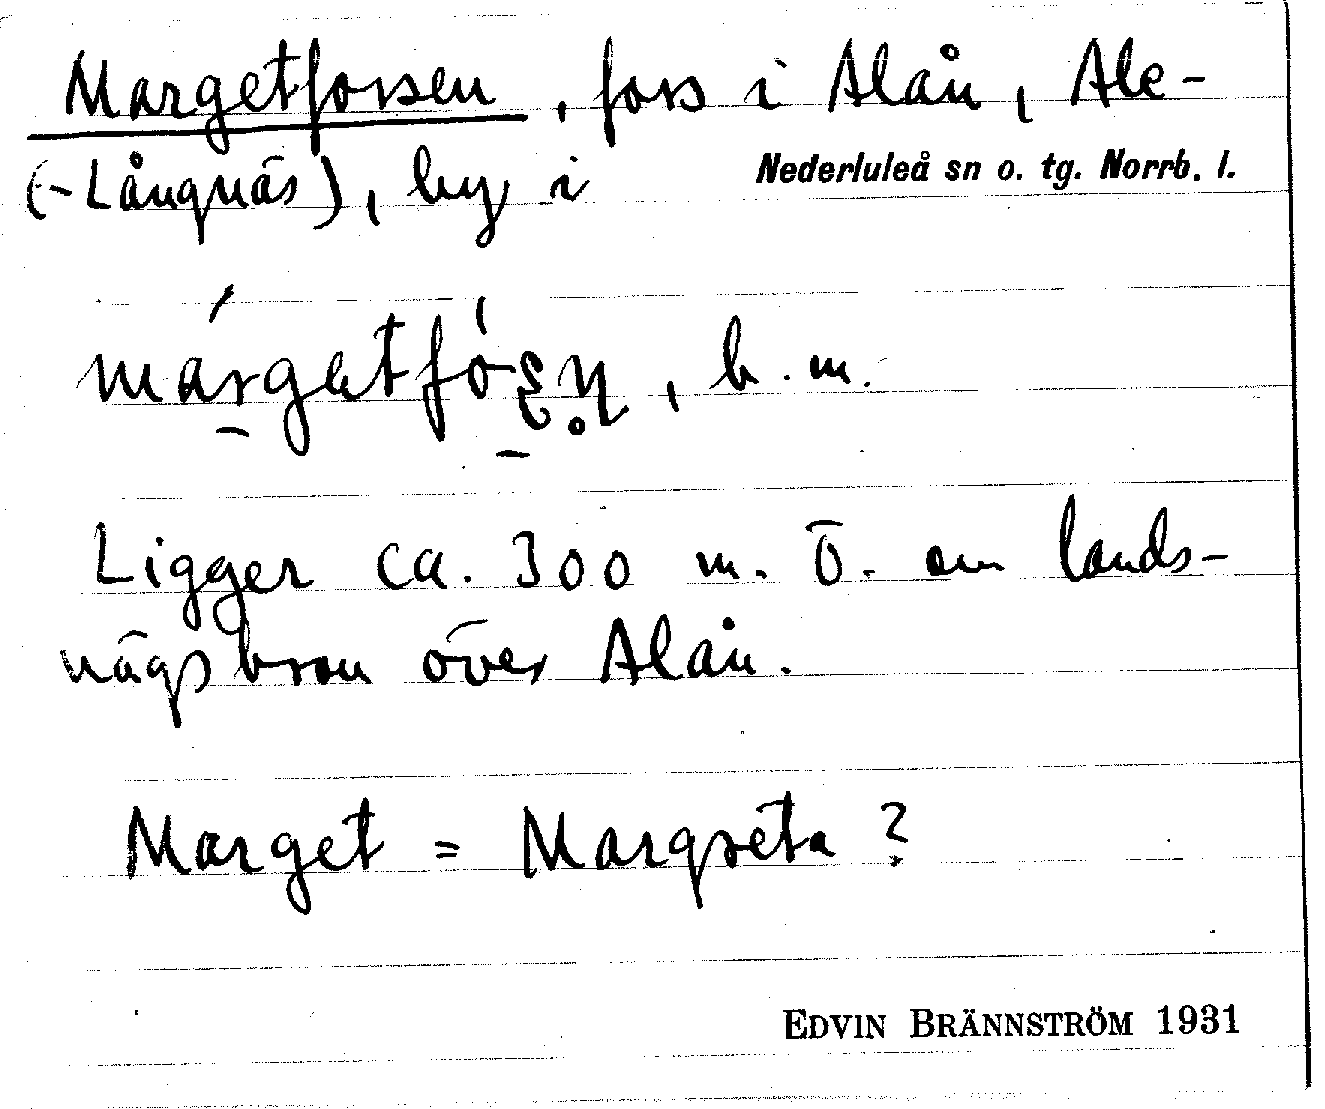 Margetforsen, fors i Alån, Ale-
(-Långnäs), by i Nederluleå sn o. tg. Norrb. l.
b. m.
Ligger ca. 300 m. Ö. om lands-
vägsbron över Alån.
Marget = Margreta ?
EDVIN BRÄNNSTRÖM 1931